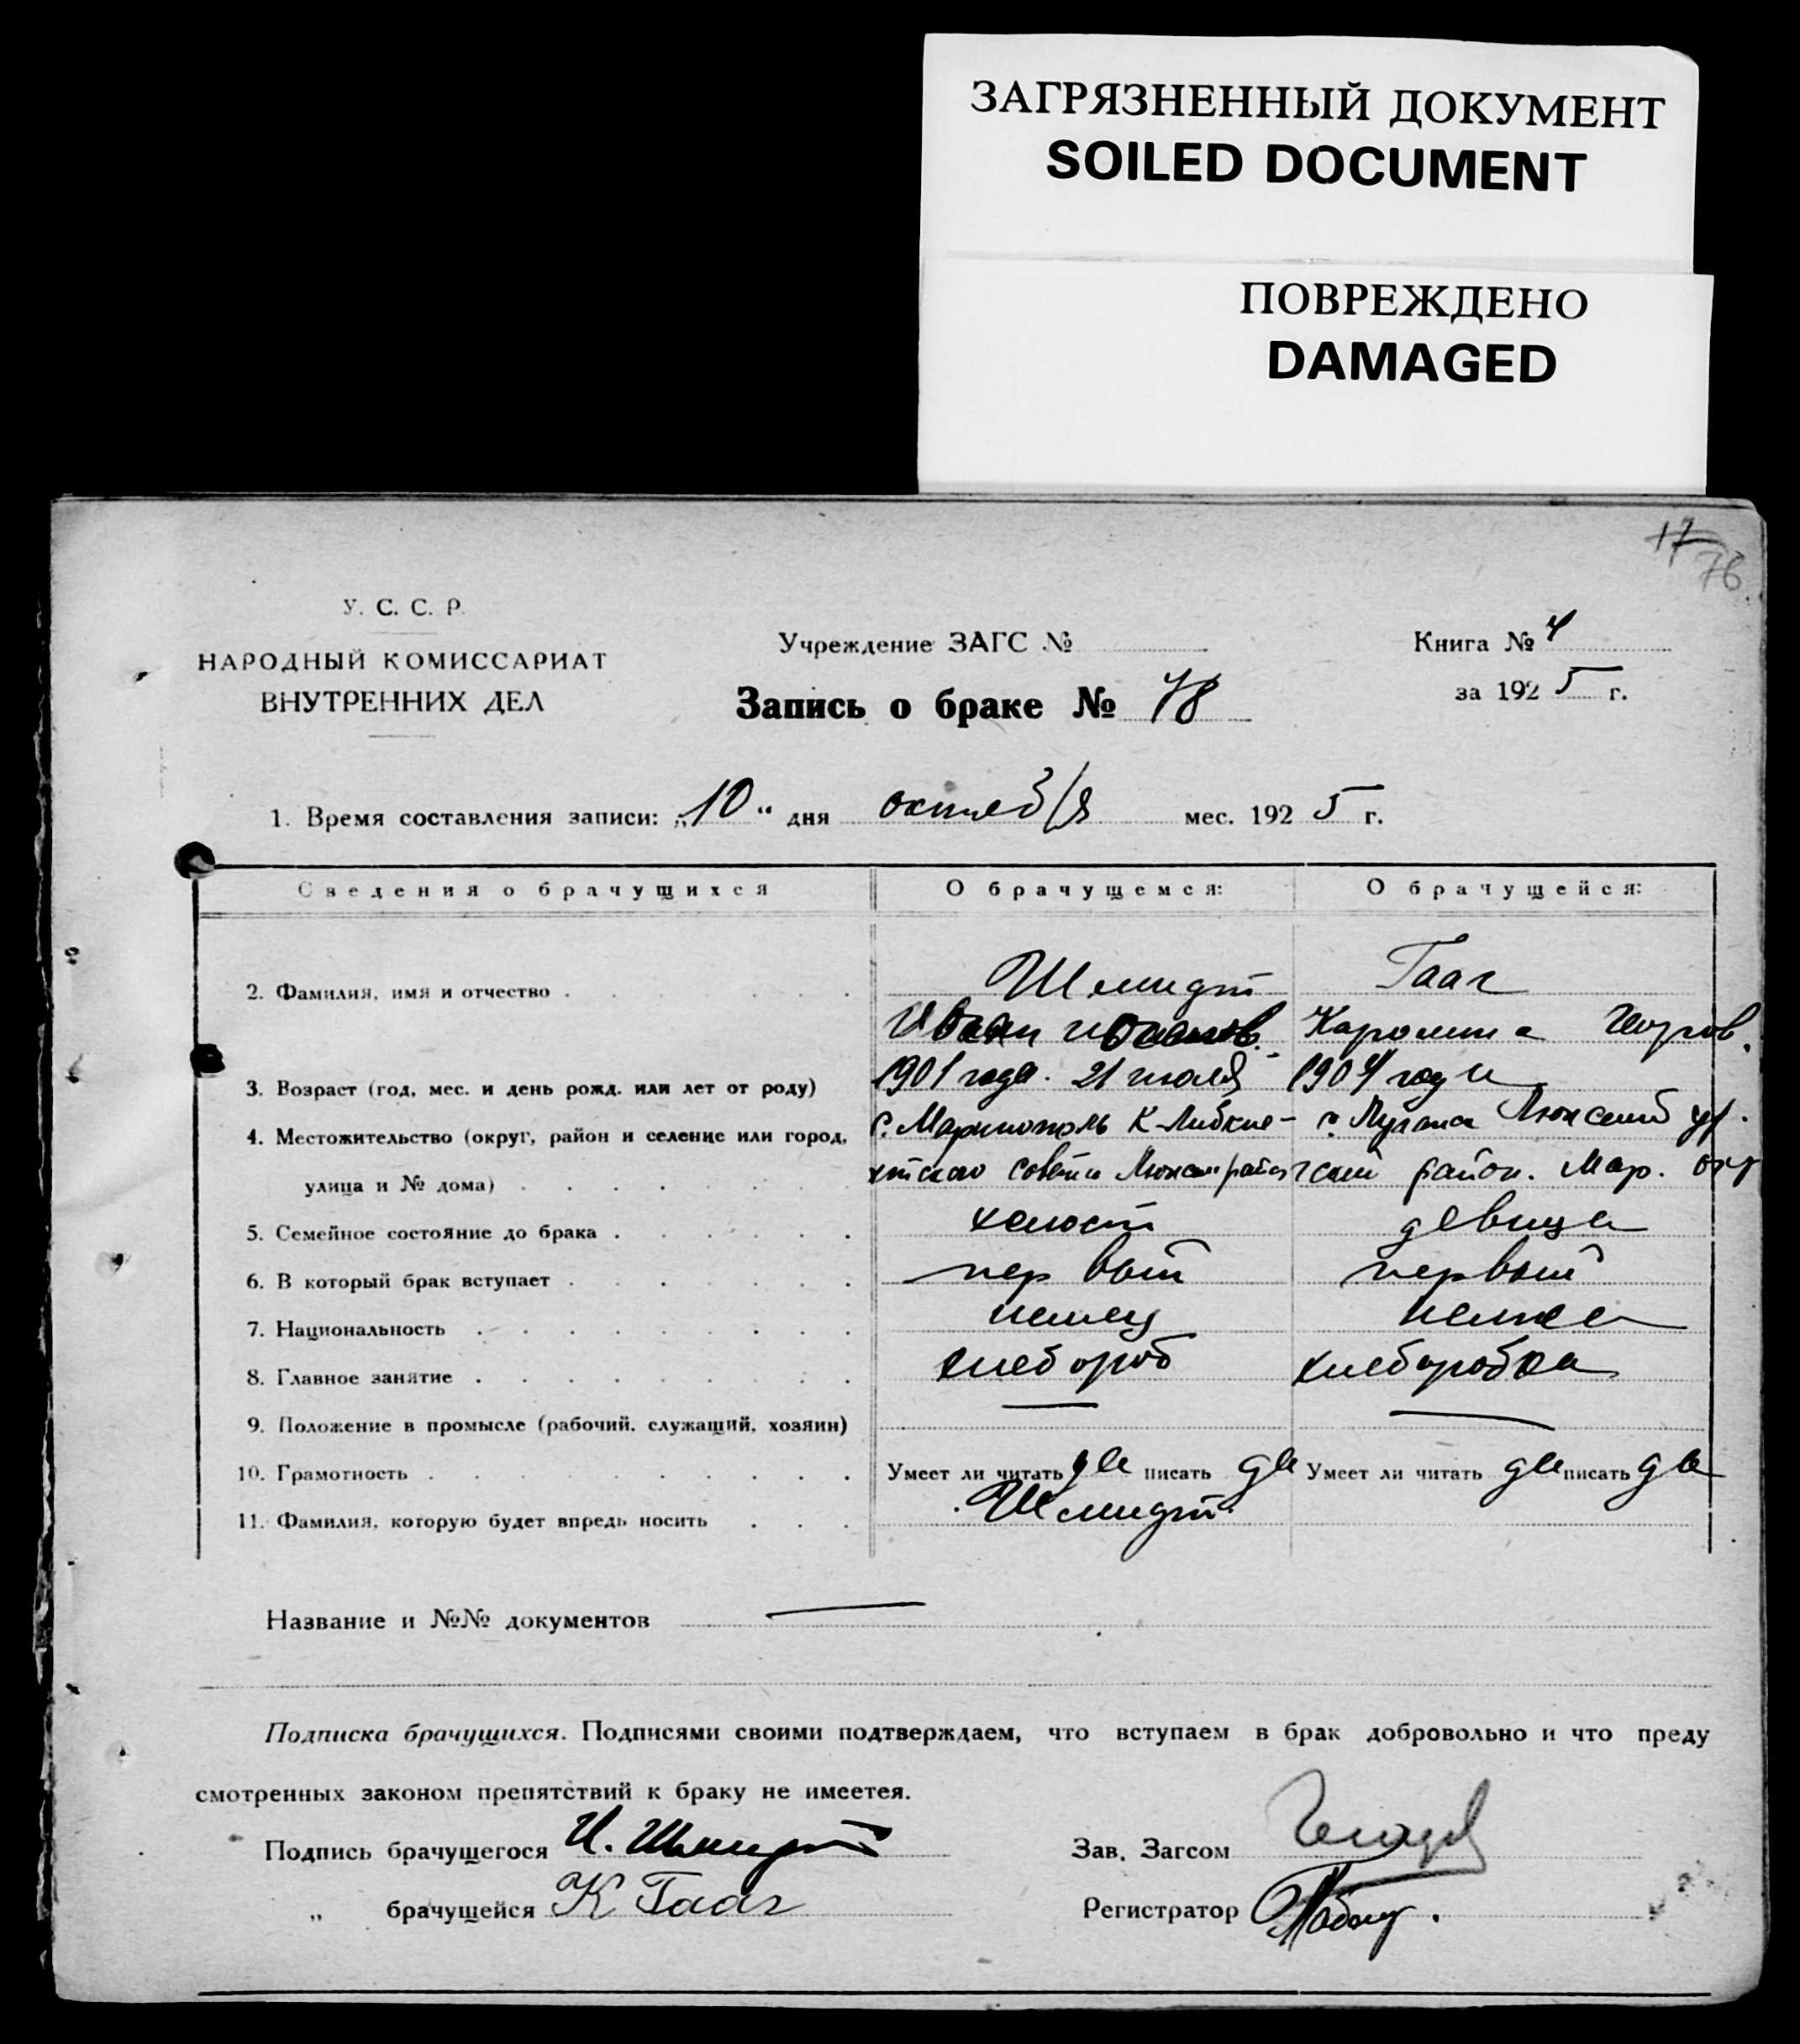 ЗАГРЯЗНЕННЫЙ ДОКУМЕНТ
SOILED DOCUMENT
ПОВРЕЖДЕНО
DAMAGED
17
76
У. С. С. Р.
НАРОДНЫЙ КОМИССАРИАТ
ВНУТРЕННИХ ДЕЛ
Учреждение ЗАГС №
Книга № 4
за 1925 г.
Запись о браке № 78
1. Время составления записи: „10“ дня октября мес. 1925 г.
Сведения о брачущихся О брачущемся: О брачущейся:
2. Фамилия, имя и отчество Шмидт Гааг
Иван Каролина Георгов.
3. Возраст (год, мес. и день рожд. или лет от роду) 1901 года. 21 июля 1904 года
4. Местожительство (округ, район и селение или город, с. Мариополь К-Либкне- с.
улица и № дома) хтского совета район. Мар. окр
5. Семейное состояние до брака холост девица
6. В который брак вступает первый первый
7. Национальность немец немка
8. Главное занятие хлебороб хлеборобка
9. Положение в промысле (рабочий, служащий, хозяин) — —
10. Грамотность Умеет ли читать да писать да Умеет ли читать да писать да
11. Фамилия, которую будет впредь носить Шмидт
Название и №№ документов —
Подписка брачущихся. Подписями своими подтверждаем, что вступаем в брак добровольно и что преду
смотренных законом препятствий к браку не имеетея.
Подпись брачущегося И. Шмидт Зав. Загсом
„ брачущейся К Гааг Регистратор